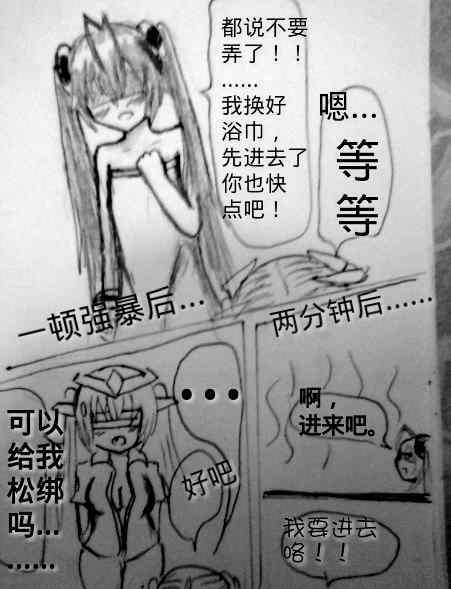 都说不要
弄了！！
……
我换好
浴巾，
先进去了
你也快
点吧！
嗯…
等
等
一顿强暴后…
两分钟后……
可以
给我
松绑
吗…
……
●●●
好吧
啊，
进来吧。
我要进去
咯！！